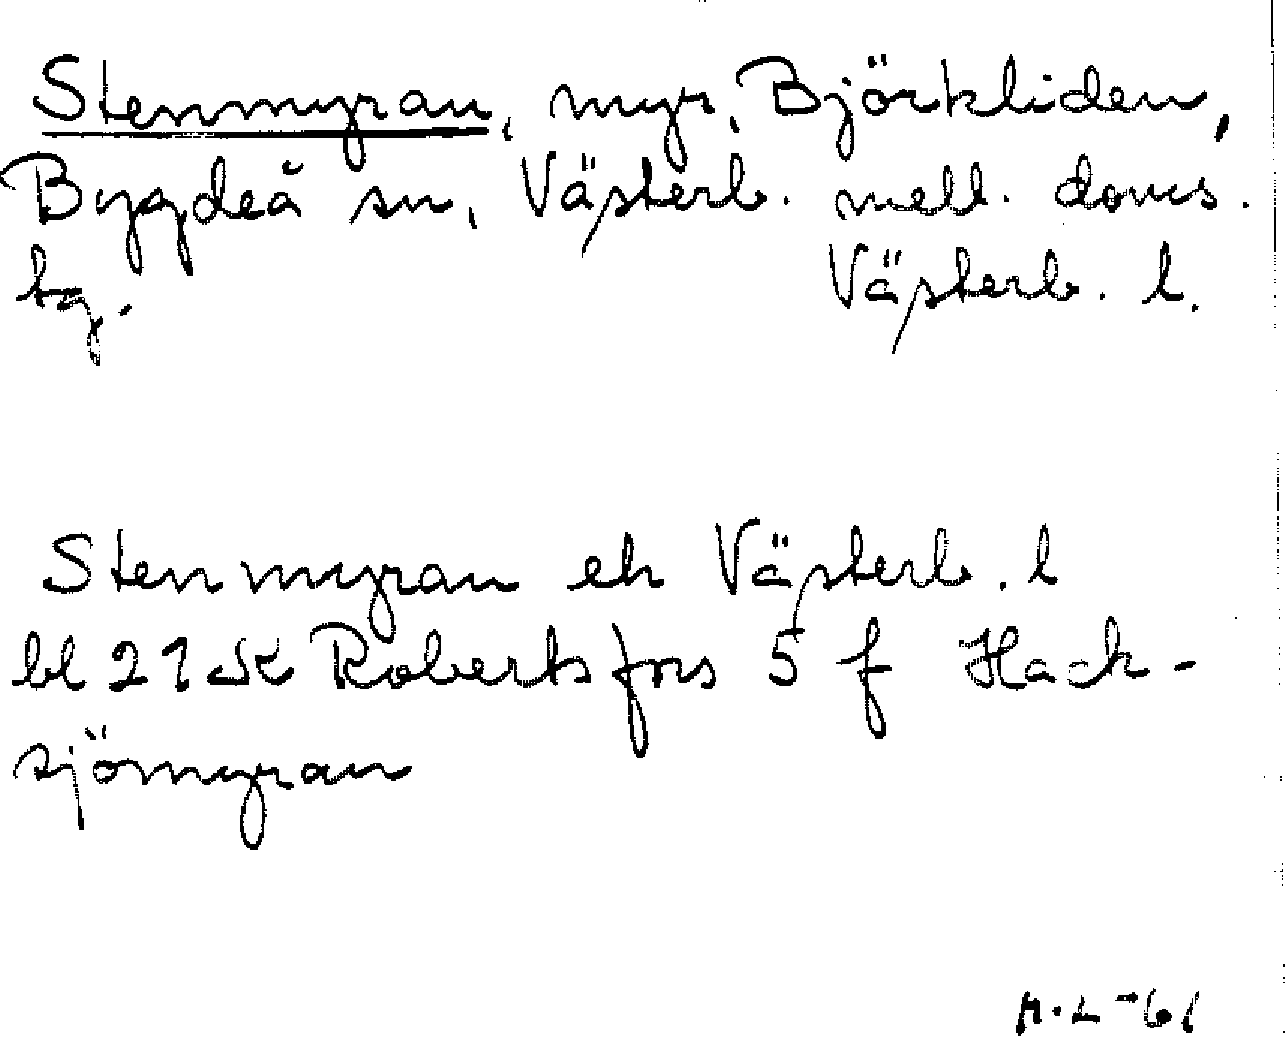 Stenmyran, myr, Björkliden,
Bygdeå sn, Västerb. mell. doms.
tg. Västerb. l.
Stenmyran ek Västerb. l
bl 21 K Robertsfors 5 f Hack-
sjömyran
M.L-61